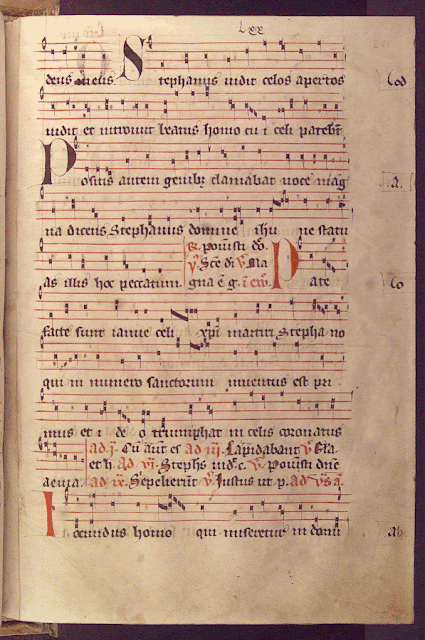 Lxx
deus Stephanus uidit celos apertos
uidit et introiuit beatus homo cu i celi patebt
Positis autem genibz clamabat uoce mag
na dicens Stephanus domine ihu ne statu
R. posuisti do.
as illis hoc peccatum V. Ma Pate
gna e g.
facte sunt ianue celi xpi martiri Stepha no
qui in numero sanctorum inuentus est pri
mus et i de o triumphat in celis coronatus
ad Cu aut es ad iii. Lapidabant V. Gla.
et h. Ad vi. Stephs uid c. V. Posuisti dne
aeuia. ad ix. Sepelierut V. Iustus ut p. ad
Iocundus homo qui miseretur in domi